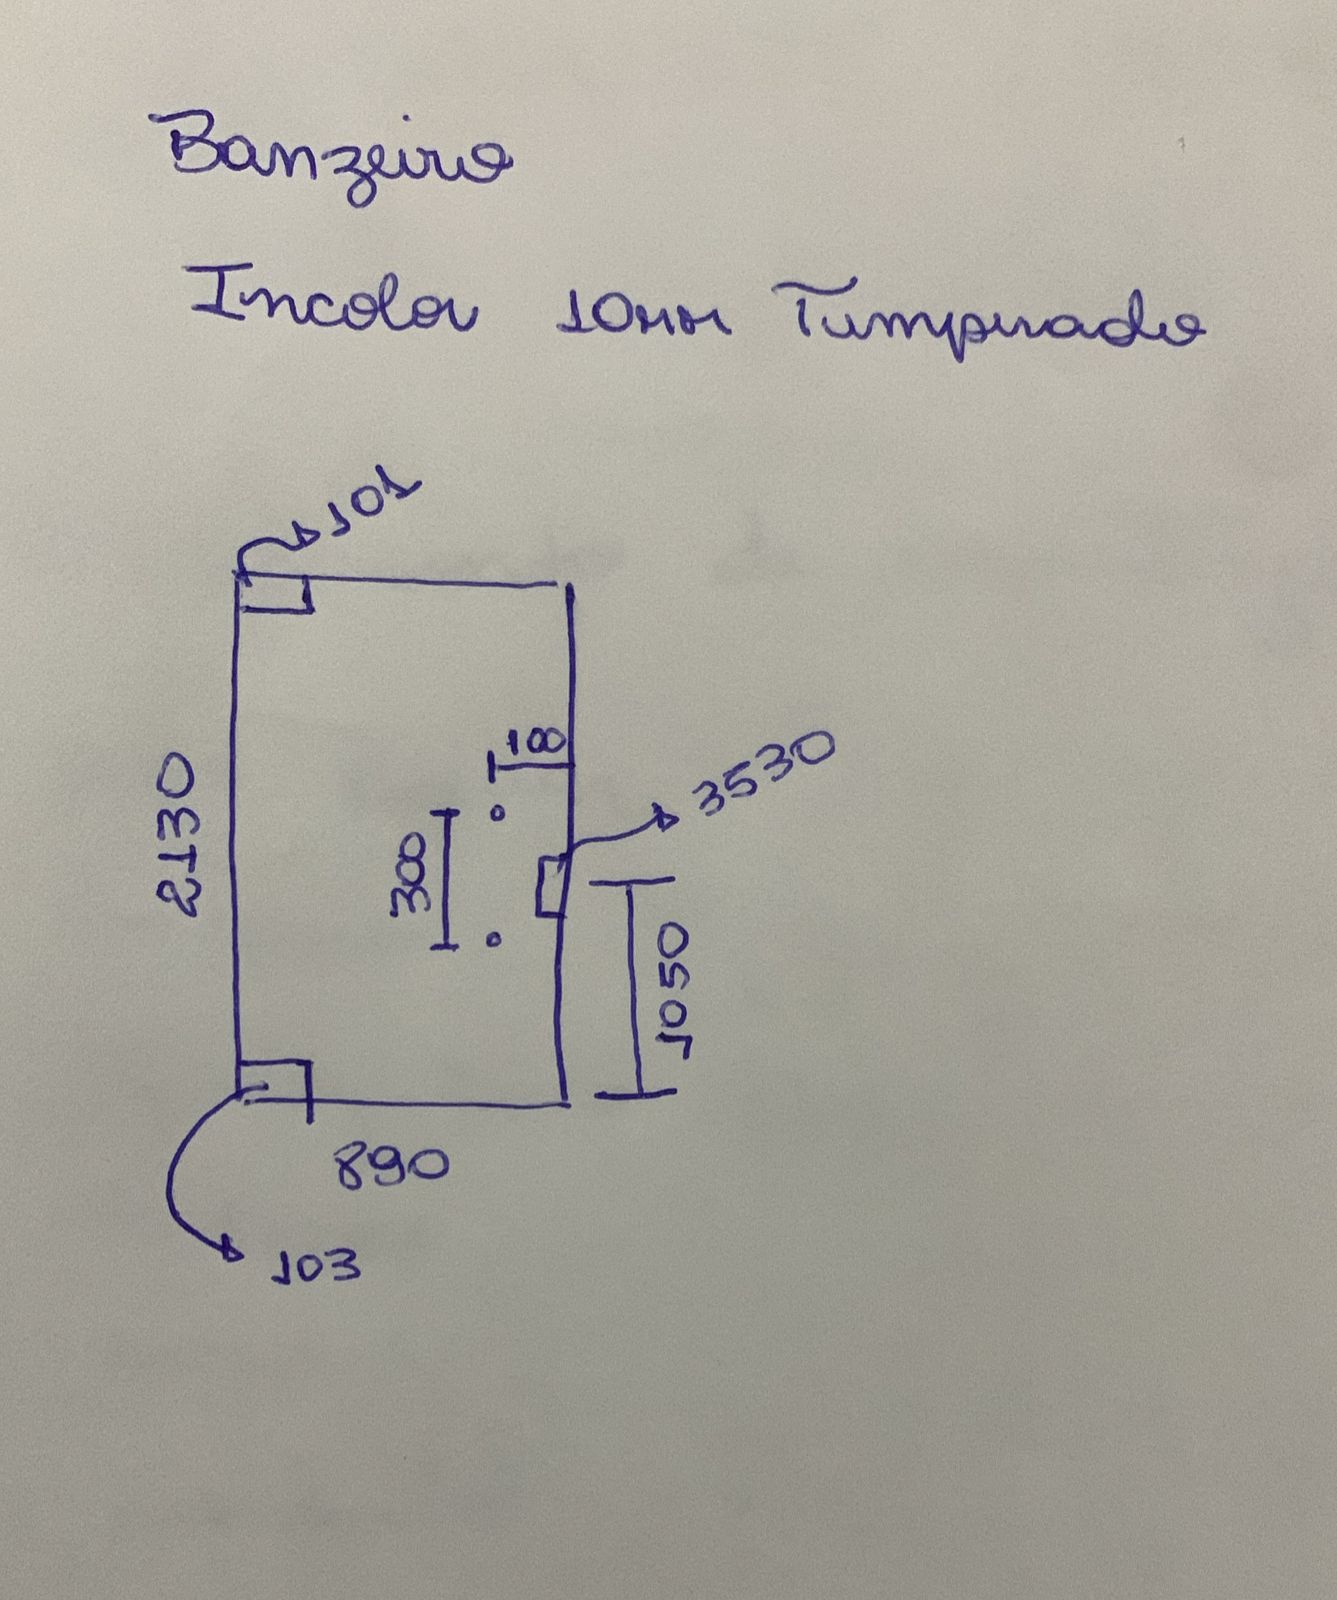 Banzeiro
Incolor 10mm Temperado
101
100
3530
2130
300
1050
890
103